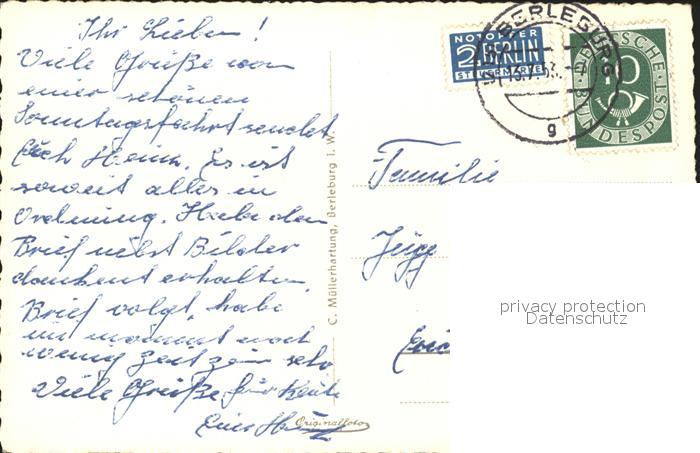 Ihr Lieben!
Viele Grüße von
einer schönen
Sonntagsfahrt sendet
Euch Heinz. Es ist
soweit alles in
Ordnung. Habe den
Brief nebst Bilder
dankend erhalten,
Brief volgt, habe
im moment noch
wenig Zeit
Viele Grüße für heute
Euer
Originalfoto
C. Müllerhartung, Berleburg i. W.
NOTOPFER
2 BERLIN
STEUERMARKE
BERLEBURG
13.7.53
g
DEUTSCHE
BUNDESPOST
10
Familie
privacy protection
Datenschutz